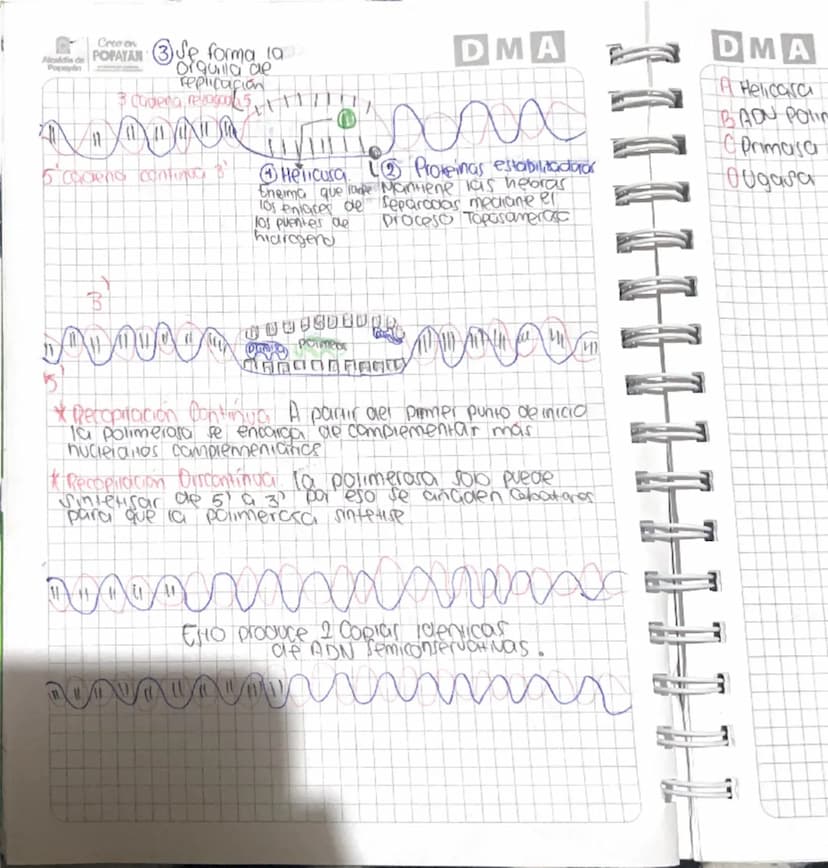 Alcaldía de
Popayán
Creo en
POPAYÁN
③ Se forma la
orquilla de
replicación
DMA
3' cadena rezagada 5'
5' cadena continua 3'
① Helicasa
Enzima que
los enlaces de
los puentes de
hidrogeno
② Proteinas estabilizadoras
Mantiene las hebras
separadas mediane el
proceso
3'
5'
* Recopilación Continua A partir del primer punto de inicio
la polimerasa se encarga de complementar más
* Recopilación Discontinua la polimerasa solo puede
sintetisar de 5' a 3' por eso se añaden cebadores
para que la polimerasa sintetise
Esto produce 2 Copias identicas
de ADN semiconservativas.
DMA
A Helicasa
B ADN Polim
C Primasa
D Ligasa